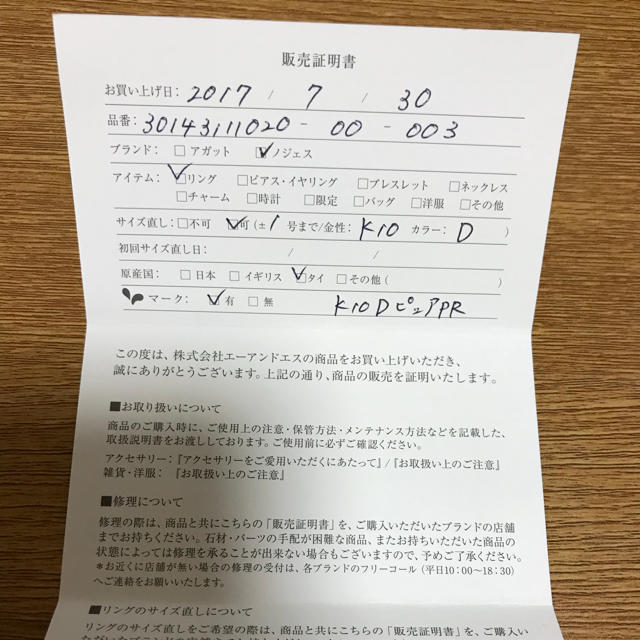 販売証明書
お買い上げ日： 2017 / 7 / 30
品番： 30143111020 - 00 - 003
ブランド： □ アガット ☑ ノジェス
アイテム： ☑リング □ピアス・イヤリング □ブレスレット □ネックレス
□チャーム □時計 □限定 □バッグ □洋服 □その他
サイズ直し：□不可 ☑可 (±1 号まで/金性： K10 カラー： D )
初回サイズ直し日： / /
原産国： □ 日本 □ イギリス ☑タイ □その他 ( )
マーク： ☑ 有 □ 無 K10DピュアPR
この度は、株式会社エーアンドエスの商品をお買い上げいただき、
誠にありがとうございます。上記の通り、商品の販売を証明いたします。
■お取り扱いについて
商品のご購入時に、ご使用上の注意・保管方法・メンテナンス方法などを記載した、
取扱説明書をお渡ししております。ご使用前に必ずご確認ください。
アクセサリー：『アクセサリーをご愛用いただくにあたって』/『お取扱い上のご注意』
雑貨・洋服： 『お取扱い上のご注意』
■修理について
修理の際は、商品と共にこちらの「販売証明書」を、ご購入いただいたブランドの店舗
までお持ちください。石材・パーツの手配が困難な商品、またお持ちいただいた商品の
状態によっては修理を承ることが出来ない場合もございますので、予めご了承ください。
*お近くに店舗が無い場合の修理の受付は、各ブランドのフリーコール（平日10：00〜18：30）
へご連絡をお願いいたします。
■リングのサイズ直しについて
リングのサイズ直しをご希望の際は、商品と共にこちらの「販売証明書」を、ご購入い